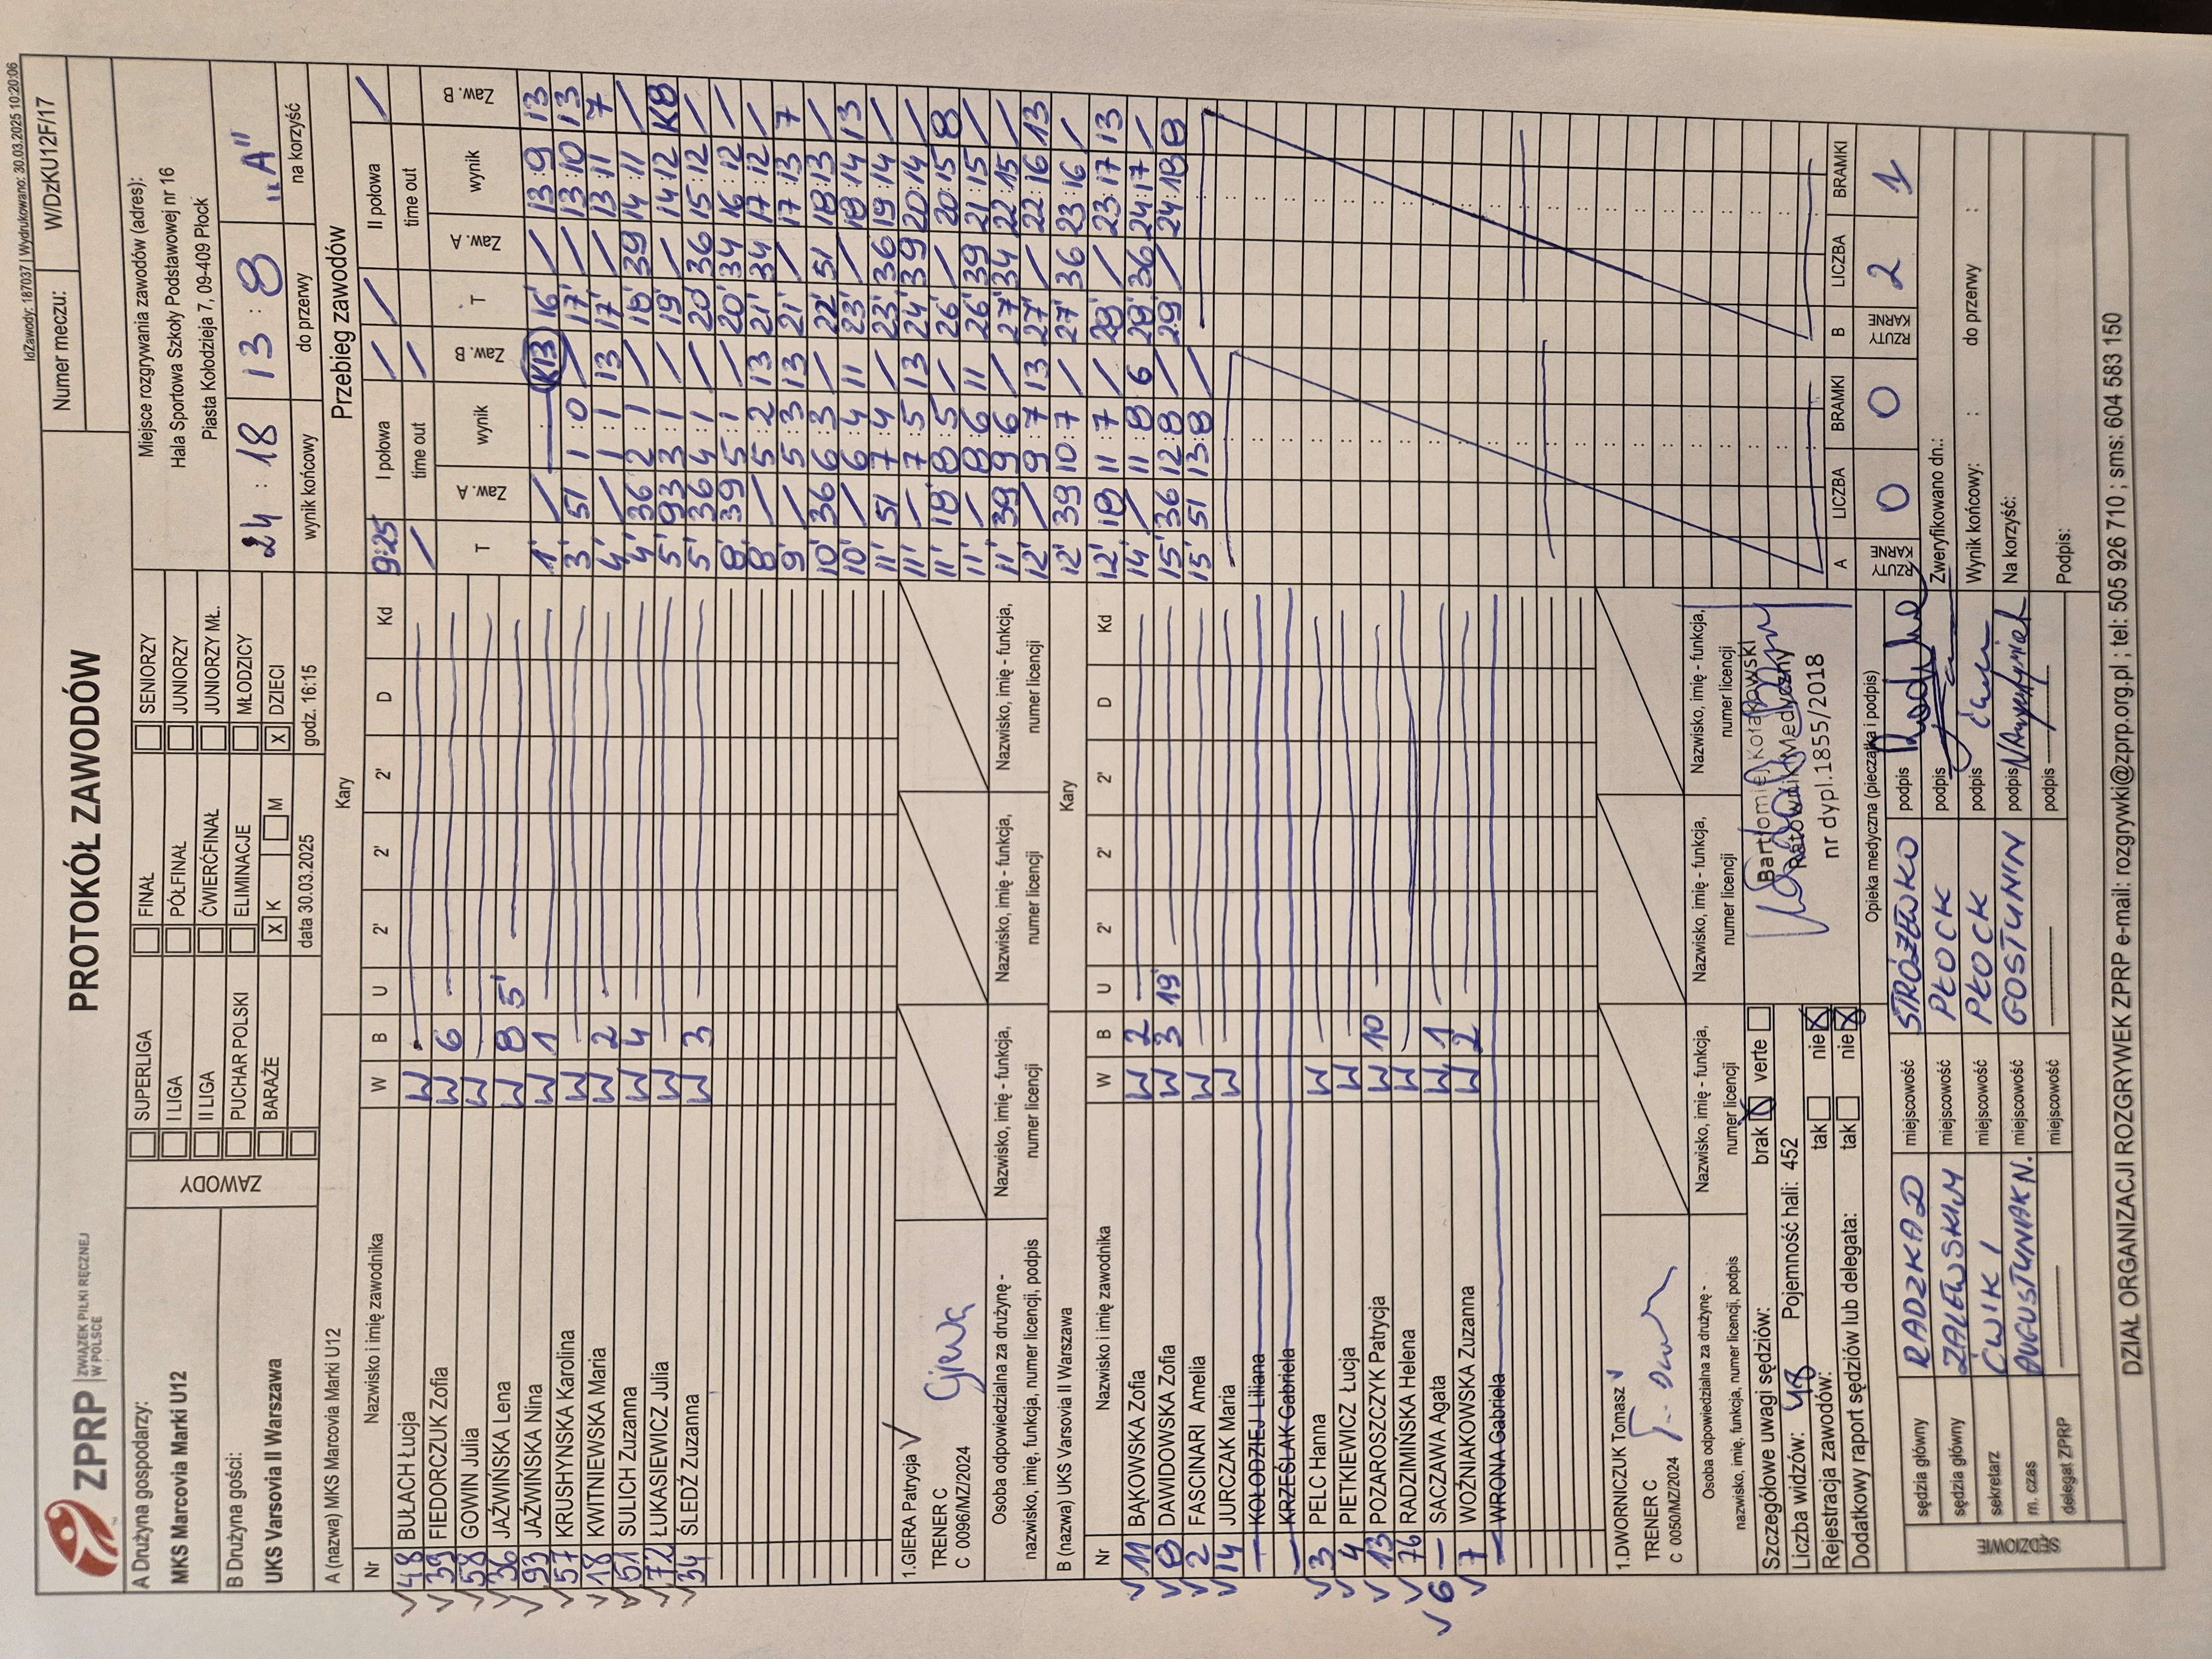 IdZawody: 187037 | Wydrukowano: 30.03.2025 10:20:06
ZPRP ZWIĄZEK PIŁKI RĘCZNEJ W POLSCE
PROTOKÓŁ ZAWODÓW
Numer meczu: W/DzKU12F/17
A Drużyna gospodarzy:
MKS Marcovia Marki U12
B Drużyna gości:
UKS Varsovia II Warszawa
ZAWODY
SUPERLIGA FINAŁ SENIORZY
I LIGA PÓŁFINAŁ JUNIORZY
II LIGA ĆWIERĆFINAŁ JUNIORZY MŁ.
PUCHAR POLSKI ELIMINACJE MŁODZICY
BARAŻE X K M X DZIECI
data 30.03.2025 godz. 16:15
Miejsce rozgrywania zawodów (adres):
Hala Sportowa Szkoły Podstawowej nr 16
Piasta Kołodzieja 7, 09-409 Płock
24 : 18 13 : 8 "A"
wynik końcowy do przerwy na korzyść
A (nazwa) MKS Marcovia Marki U12 Kary
Nr Nazwisko i imię zawodnika W B U 2' 2' 2' D Kd
48 BUŁACH Łucja W
39 FIEDORCZUK Zofia W 6
58 GOWIN Julia W
36 JAŹWIŃSKA Lena W 8 5'
93 JAŹWIŃSKA Nina W 1
57 KRUSHYNSKA Karolina W
18 KWITNIEWSKA Maria W 2
51 SULICH Zuzanna W 4
72 ŁUKASIEWICZ Julia W
34 ŚLEDŹ Zuzanna W 3
1.GIERA Patrycja
TRENER C
C 0096/MZ/2024
Giera
Osoba odpowiedzialna za drużynę -
nazwisko, imię, funkcja, numer licencji, podpis
Nazwisko, imię - funkcja, numer licencji
Nazwisko, imię - funkcja, numer licencji
Nazwisko, imię - funkcja, numer licencji
B (nazwa) UKS Varsovia II Warszawa Kary
Nr Nazwisko i imię zawodnika W B U 2' 2' 2' D Kd
11 BĄKOWSKA Zofia W 2
8 DAWIDOWSKA Zofia W 3 19'
2 FASCINARI Amelia W
14 JURCZAK Maria W
KOŁODZIEJ Liliana
KRZEŚLAK Gabriela
3 PELC Hanna W
4 PIETKIEWICZ Łucja W
13 POZAROSZCZYK Patrycja W 10
76 RADZIMIŃSKA Helena W
6 SACZAWA Agata W 1
7 WOŹNIAKOWSKA Zuzanna W 2
WRONA Gabriela
1.DWORNICZUK Tomasz
TRENER C
C 0050/MZ/2024
Osoba odpowiedzialna za drużynę -
nazwisko, imię, funkcja, numer licencji, podpis
Nazwisko, imię - funkcja, numer licencji
Nazwisko, imię - funkcja, numer licencji
Nazwisko, imię - funkcja, numer licencji
Szczegółowe uwagi sędziów: brak X verte
Liczba widzów: 48 Pojemność hali: 452
Rejestracja zawodów: tak nie X
Dodatkowy raport sędziów lub delegata: tak nie X
Bartłomiej Kołakowski
Ratownik Medyczny
nr dypl.1855/2018
Opieka medyczna (pieczątka i podpis)
SĘDZIOWIE
sędzia główny RADZKA D miejscowość STRÓŻEWKO podpis
sędzia główny ZALEWSKI M miejscowość PŁOCK podpis
sekretarz ĆWIK I miejscowość PŁOCK podpis
m. czas AUGUSTYNIAK N. miejscowość GOSTYNIN podpis
delegat ZPRP miejscowość podpis
Przebieg zawodów
9:25 I połowa II połowa
time out time out
T Zaw. A wynik Zaw. B T Zaw. A wynik Zaw. B
1' / K13 16' / 13:9 13
3' 51 1:0 / 17' / 13:10 13
4' / 1:1 13 17' / 13:11 7
4' 36 2:1 / 18' 39 14:11 /
5' 93 3:1 / 19' / 14:12 K8
5' 36 4:1 / 20' 36 15:12 /
8' 39 5:1 / 20' 34 16:12 /
8' / 5:2 13 21' 34 17:12 /
9' / 5:3 13 21' / 17:13 7
10' 36 6:3 / 22' 51 18:13 /
10' / 6:4 11 23' / 18:14 13
11' 51 7:4 / 23' 36 19:14 /
11' / 7:5 13 24' 39 20:14 /
11' 18 8:5 / 26' / 20:15 8
11' / 8:6 11 26' 39 21:15 /
11' 39 9:6 / 27' 34 22:15 /
12' / 9:7 13 27' / 22:16 13
12' 39 10:7 / 27' 36 23:16 /
12' 18 11:7 / 28' / 23:17 13
14' / 11:8 6 29' 36 24:17 /
15' 36 12:8 / 29' / 24:18 8
15' 51 13:8 /
A LICZBA BRAMKI B LICZBA BRAMKI
RZUTY KARNE 0 0 RZUTY KARNE 2 1
Zweryfikowano dn.:
Wynik końcowy: : do przerwy :
Na korzyść:
Podpis:
DZIAŁ ORGANIZACJI ROZGRYWEK ZPRP e-mail: rozgrywki@zprp.org.pl ; tel: 505 926 710 ; sms: 604 583 150